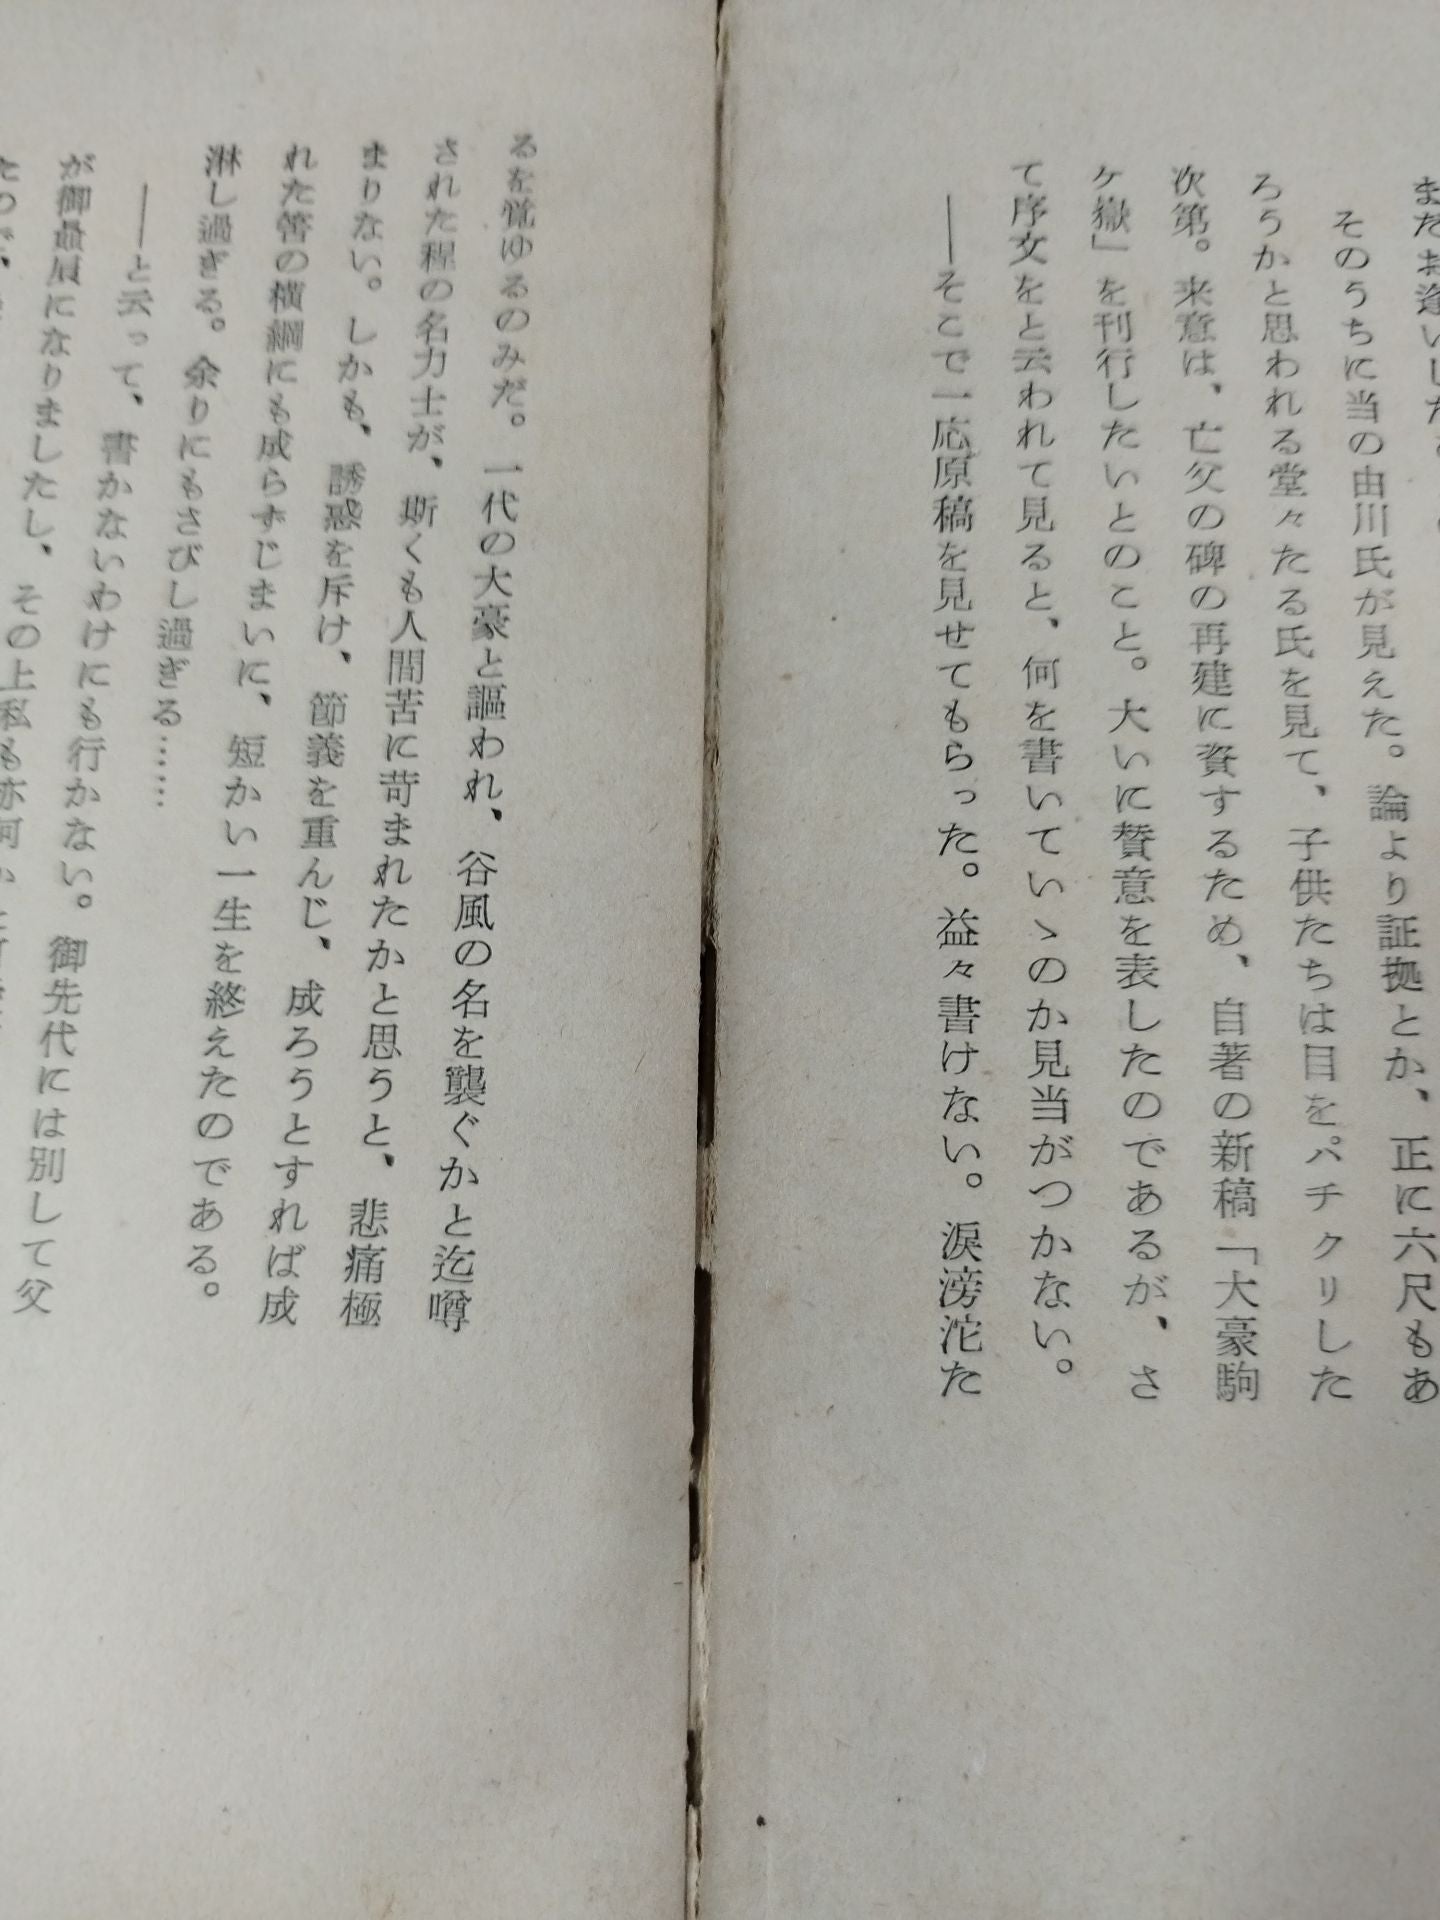 まだお逢いした
そのうちに当の由川氏が見えた。論より証拠とか、正に六尺もあ
ろうかと思われる堂々たる氏を見て、子供たちは目をパチクリした
次第。来意は、亡父の碑の再建に資するため、自著の新稿「大豪駒
ケ嶽」を刊行したいとのこと。大いに賛意を表したのであるが、さ
て序文をと云われて見ると、何を書いていゝのか見当がつかない。
――そこで一応原稿を見せてもらった。益々書けない。涙滂沱た
るを覚ゆるのみだ。一代の大豪と謳われ、谷風の名を襲ぐかと迄噂
された程の名力士が、斯くも人間苦に苛まれたかと思うと、悲痛極
まりない。しかも、誘惑を斥け、節義を重んじ、成ろうとすれば成
れた筈の横綱にも成らずじまいに、短かい一生を終えたのである。
淋し過ぎる。余りにもさびし過ぎる……
――と云って、書かないわけにも行かない。御先代には別して父
が御贔屓になりましたし、その上私も亦何か
たので、